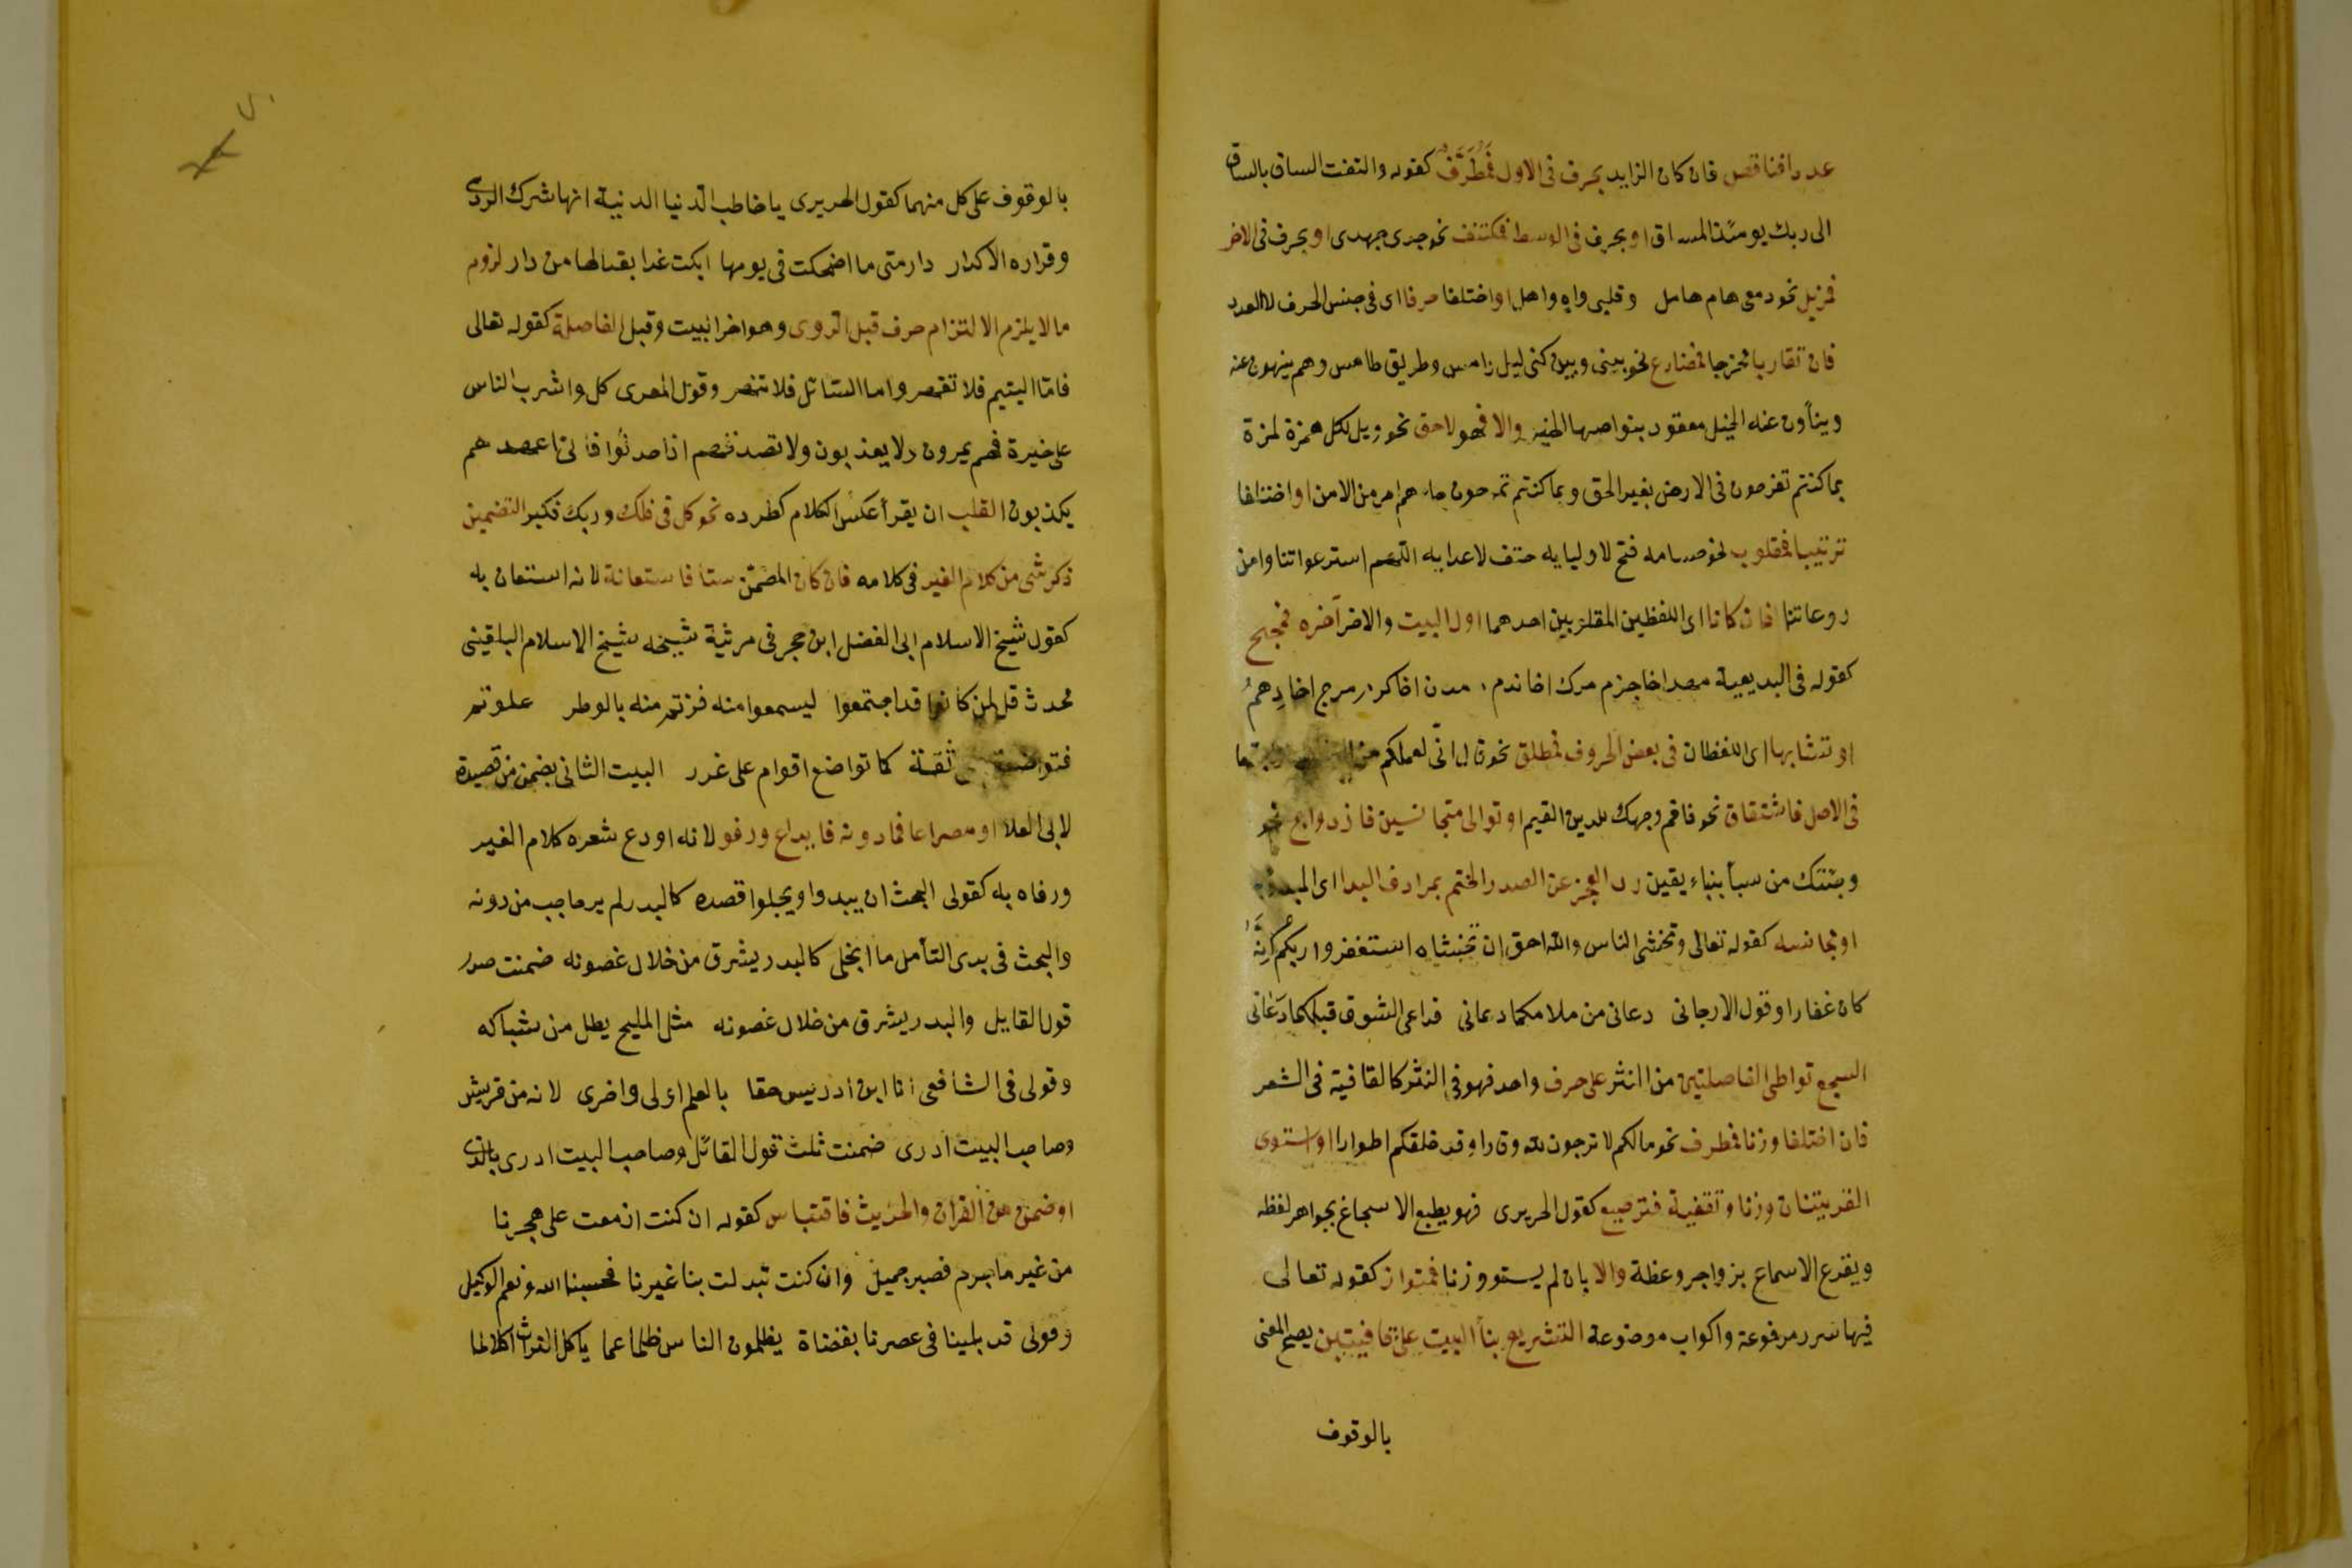 عددا فناقص فان كان الزايد بحرف فى الاول فمُطَرَّف كقوله والتفت الساق بالساق
الى ربك يومئذ المساق او بحرف فى الوسط فمكتنف نحو جدى جهدى او بحرف فى الاخر
فمزيل نحو دمعى هام هامل وقلبى واه واهل او اختلفا حرفا اى فى جنس الحرف لا العدد
فان تقاربا مخرجا فمضارع نحو بينى وبين كنى ليل دامس وطريق طامس وهم ينهون عنه
وينأون عنه الخيل معقود بنواصيها الخير والا فهو لاحق نحو ويل لكل همزة لمزة
بما كنتم تفرحون فى الارض بغير الحق وبما كنتم تمرحون جاءهم امر من الامن او اختلفا
ترتيبا فمقلوب نحو حسامه فتح لاوليايه حتف لاعدايه اللهم استر عوراتنا وامن
روعاتنا فان كانا اى اللفظين المقلوبين احدهما اول البيت والاخر آخره فمجنح
كقوله فى البديعية
او تشابها اى اللفظان فى بعض الحروف فمطلق نحو قال انى لعملكم من
فى الاصل فاشتقاق نحو فاقم وجهك للدين القيم او توالى متجانسين فازدواج نحو
وجئتك من سبأ بنباء يقين رد العجز عن الصدر الختم بمرادف البدا اى المبدو به
او مجانسه كقوله تعالى وتخشى الناس والله احق ان تخشاه استغفروا ربكم اِنَّهُ
كان غفارا وقول الارجانى دعانى من ملامكما دعانى فداعى الشوق قبلكما دَعَانى
السجع تواطى الفاصلتين من النثر على حرف واحد فهو فى النثر كالقافية فى الشعر
فان اختلفا وزنا فمطرف نحو مالكم لا ترجون لله وقارا وقد خلقكم اطوارا او استوى
القرينتان وزنا وتقفية فترصيع كقول الحريرى فهو يطبع الاسجاع بجواهر لفظه
ويقرع الاسماع بزواجر وعظة والا بان لم يستو وزنا فمتواز كقوله تعالى
فيها سرر مرفوعة واكواب موضوعة التشريع بنأ البيت على قافيتين يصح المعنى
بالوقوف
بالوقوف على كل منهما كقول الحريرى يا خاطب الدنيا الدنية انها شرك الردى
وقراره الاكدار دار متى ما اضحكت فى يومها ابكت غدا بقالها من دار لزوم
ما لا يلزم الالتزام حرف قبل الروى وهو اخر البيت وقبل الفاصلة كقوله تعالى
فامّا اليتيم فلا تقهر واما السّائل فلا تنهر وقول المعرى كل واشرب الناس
على خبرة فهم يمرون ولا يعذبون ولا تصدقهم اذا حدثوا فانى اعهدهم
يكذبون القلب ان يقرأ عكس الكلام كطرده نحو كل فى فلك وربك فكبر التضمين
ذكر شى من كلام الغير فى كلامه فان كان المضمّن بيتا فاستعانة لانه استعان به
كقول شيخ الاسلام ابى الفضل ابن حجر فى مرثية شيخه شيخ الاسلام البلقينى
محدث قل لمن كانوا قد اجتمعوا ليسمعوا منه فزتم منه بالوطر علوتم
فتواضعتم ثقة كما تواضع اقوام على غرر البيت الثانى بضمن من قصيدة
لابى العلا او مصراعا فما دونه فايداع ورفو لانه اودع شعره كلام الغير
ورفاه به كقولى البحث ان يبدو او يجلوا قصده كالبدر لم ير حاجب من دونه
والبحث فى بدى التأمل ما انجلى كالبدر يشرق من خلال غصونه ضمنت صدر
قول القايل والبدر يشرق من خلال غصونه مثل المليح يطل من شباكه
وقولى فى الشأفعى انا ابن أدريس حقا بالعلم اولى واخرى لانه من قريش
وصاحب البيت أدرى ضمنت ثلث قول القائل وصاحب البيت ادرى بالذى
او ضمن من القران والحديث فاقتباس كقوله ان كنت ازمعت على هجرنا
من غير ما جرم فصبر جميل وان كنت تبدلت بنا غيرنا فحسبنا الله ونعم الوكيل
وقولى قد بلينا فى عصرنا بقضاة يظلمون الناس ظلما عما ياكل التراث اكلا لما